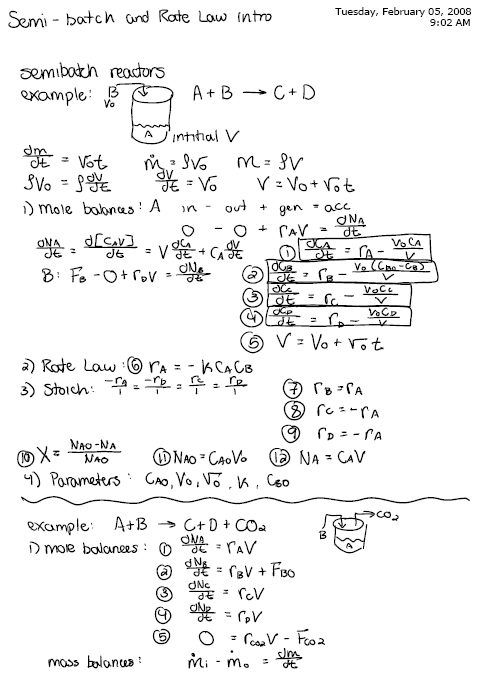 Semi-batch and Rate Law intro
Tuesday, February 05, 2008
9:02 AM
semibatch reactors
example: B V₀ A A + B → C + D
intitial V
dm/dt = v₀t ṁ = ρv₀ m = ρV
ρv₀ = ρ dV/dt dV/dt = v₀ V = V₀ + v₀t
1) mole balances: A in - out + gen = acc
0 - 0 + r_A V = dN_A/dt
dN_A/dt = d[C_A V]/dt = V dC_A/dt + C_A dV/dt ① dC_A/dt = r_A - v₀C_A/V
B: F_B - 0 + r_D V = dN_B/dt ② dC_B/dt = r_B - v₀(C_B0 - C_B)/V
③ dC_C/dt = r_C - v₀C_C/V
④ dC_D/dt = r_D - v₀C_D/V
⑤ V = V₀ + v₀t
2) Rate Law: ⑥ r_A = -k C_A C_B
3) Stoich: -r_A/1 = -r_D/1 = r_C/1 = r_D/1 ⑦ r_B = r_A
⑧ r_C = -r_A
⑨ r_D = -r_A
⑩ X = N_A0 - N_A/N_A0 ⑪ N_A0 = C_A0 V₀ ⑫ N_A = C_A V
4) Parameters: C_A0, V₀, v₀, k, C_B0
example: A + B → C + D + CO₂ B A CO₂
1) mole balances: ① dN_A/dt = r_A V
② dN_B/dt = r_B V + F_B0
③ dN_C/dt = r_C V
④ dN_D/dt = r_D V
⑤ 0 = r_CO₂ V - F_CO₂
mass balances: ṁ_i - ṁ_o = dm/dt